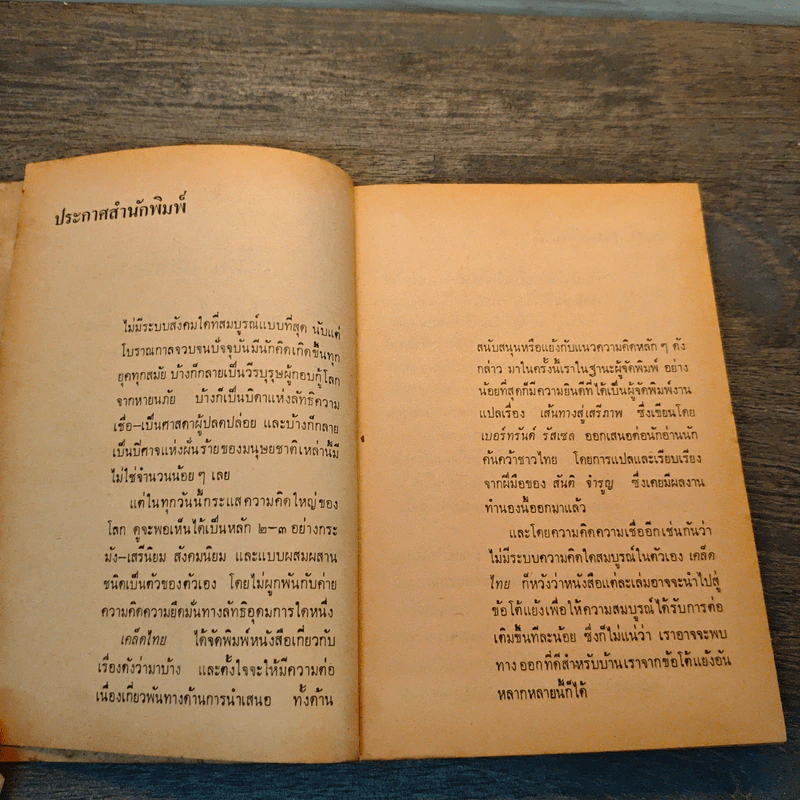 ประกาศสำนักพิมพ์
ไม่มีระบบสังคมใดที่สมบูรณ์แบบที่สุด นับแต่
โบราณกาลจวบจนปัจจุบันมีนักคิดเกิดขึ้นทุก
ยุคทุกสมัย บ้างก็กลายเป็นวีรบุรุษผู้กอบกู้โลก
จากหายนภัย บ้างก็เป็นบิดาแห่งลัทธิความ
เชื่อ–เป็นศาสดาผู้ปลดปล่อย และบ้างก็กลาย
เป็นปีศาจแห่งฝันร้ายของมนุษยชาติเหล่านี้มี
ไม่ใช่จำนวนน้อย ๆ เลย
แต่ในทุกวันนี้กระแสความคิดใหญ่ของ
โลก ดูจะพอเห็นได้เป็นหลัก ๒–๓ อย่างกระ
มัง–เสรีนิยม สังคมนิยม และแบบผสมผสาน
ชนิดเป็นตัวของตัวเอง โดยไม่ผูกพันกับค่าย
ความคิดความยึดมั่นทางลัทธิอุดมการใดหนึ่ง
เคล็ดไทย ได้จัดพิมพ์หนังสือเกี่ยวกับ
เรื่องดังว่ามาบ้าง และตั้งใจจะให้มีความต่อ
เนื่องเกี่ยวพันทางด้านการนำเสนอ ทั้งด้าน
สนับสนุนหรือแย้งกับแนวความคิดหลัก ๆ ดัง
กล่าว มาในครั้งนี้เราในฐานะผู้จัดพิมพ์ อย่าง
น้อยที่สุดก็มีความยินดีที่ได้เป็นผู้จัดพิมพ์งาน
แปลเรื่อง เส้นทางสู่เสรีภาพ ซึ่งเขียนโดย
เบอร์ทรันด์ รัสเซล ออกเสนอต่อนักอ่านนัก
ค้นคว้าชาวไทย โดยการแปลและเรียบเรียง
จากฝีมือของ สันติ จำรูญ ซึ่งเคยมีผลงาน
ทำนองนี้ออกมาแล้ว
และโดยความคิดความเชื่ออีกเช่นกันว่า
ไม่มีระบบความคิดใดสมบูรณ์ในตัวเอง เคล็ด
ไทย ก็หวังว่าหนังสือแต่ละเล่มอาจจะนำไปสู่
ข้อโต้แย้งเพื่อให้ความสมบูรณ์ได้รับการต่อ
เติมขึ้นทีละน้อย ซึ่งก็ไม่แน่ว่า เราอาจจะพบ
ทางออกที่ดีสำหรับบ้านเราจากข้อโต้แย้งอัน
หลากหลายนี้ก็ได้